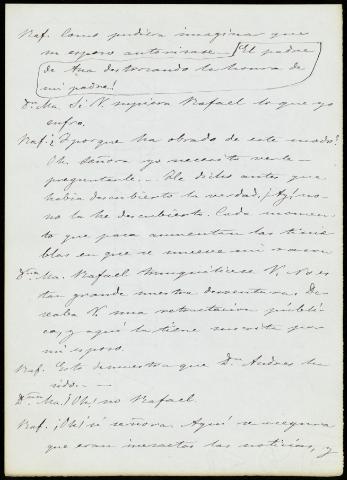 Raf. Como pudiera imaginar que
su esposo autorizase - ¡El padre
de Ana destrozando la honra de
mi padre!
Dª Ma. Si V. supiera Rafael lo que yo
sufro.
Raf. ¿Y porque ha obrado de este modo?
Oh, señora yo necesito verle -
preguntarle - Me dicho antes que
habia descubierto la verdad, ¡Ay! no -
no la he descubierto. Cada momen-
to que pasa aumentan las tinie-
blas en que se mueve mi razon
Dña Ma. Rafael tranquilicese V. No es
tan grande nuestra desventura. De-
seaba V. una retractacion públi-
ca, y aquí la tiene escrita por
mi esposo.
Raf. Esto demuestra que Dn. Andres ha
sido. - -
Dña Ma. ¡Oh! no Rafael.
Raf. ¡Oh! si señora. Aquí se asegura
que eran inexactas las noticias, y